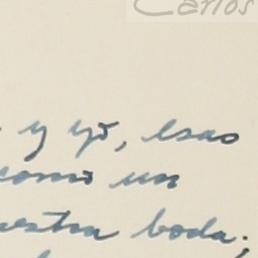 Carlos
y yó, esas
como un
nuestra boda;